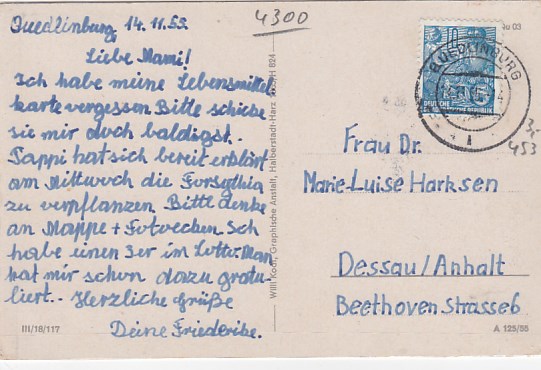 Quedlinburg, 14.11.55
4300
Liebe Mami!
Ich habe meine Lebensmittel
karte vergessen. Bitte schicke
sie mir doch baldigst.
Pappi hat sich bereit erklärt
am Mittwoch die Forsythia
zu verpflanzen. Bitte denke
an Mappe + Fotoecken. Ich
habe einen 3er im Lotto. Man
hat mir schon dazu gratu-
liert.. Herzliche Grüße
Deine Friederike.
III/18/117
Willi Koch, Graphische Anstalt, Halberstadt-Harz
H 824
03
QUEDLINBURG
DEUTSCHE
Frau Dr.
Marie-Luise Harksen
Dessau/Anhalt
Beethoven Strasse 6
453
A 125/55